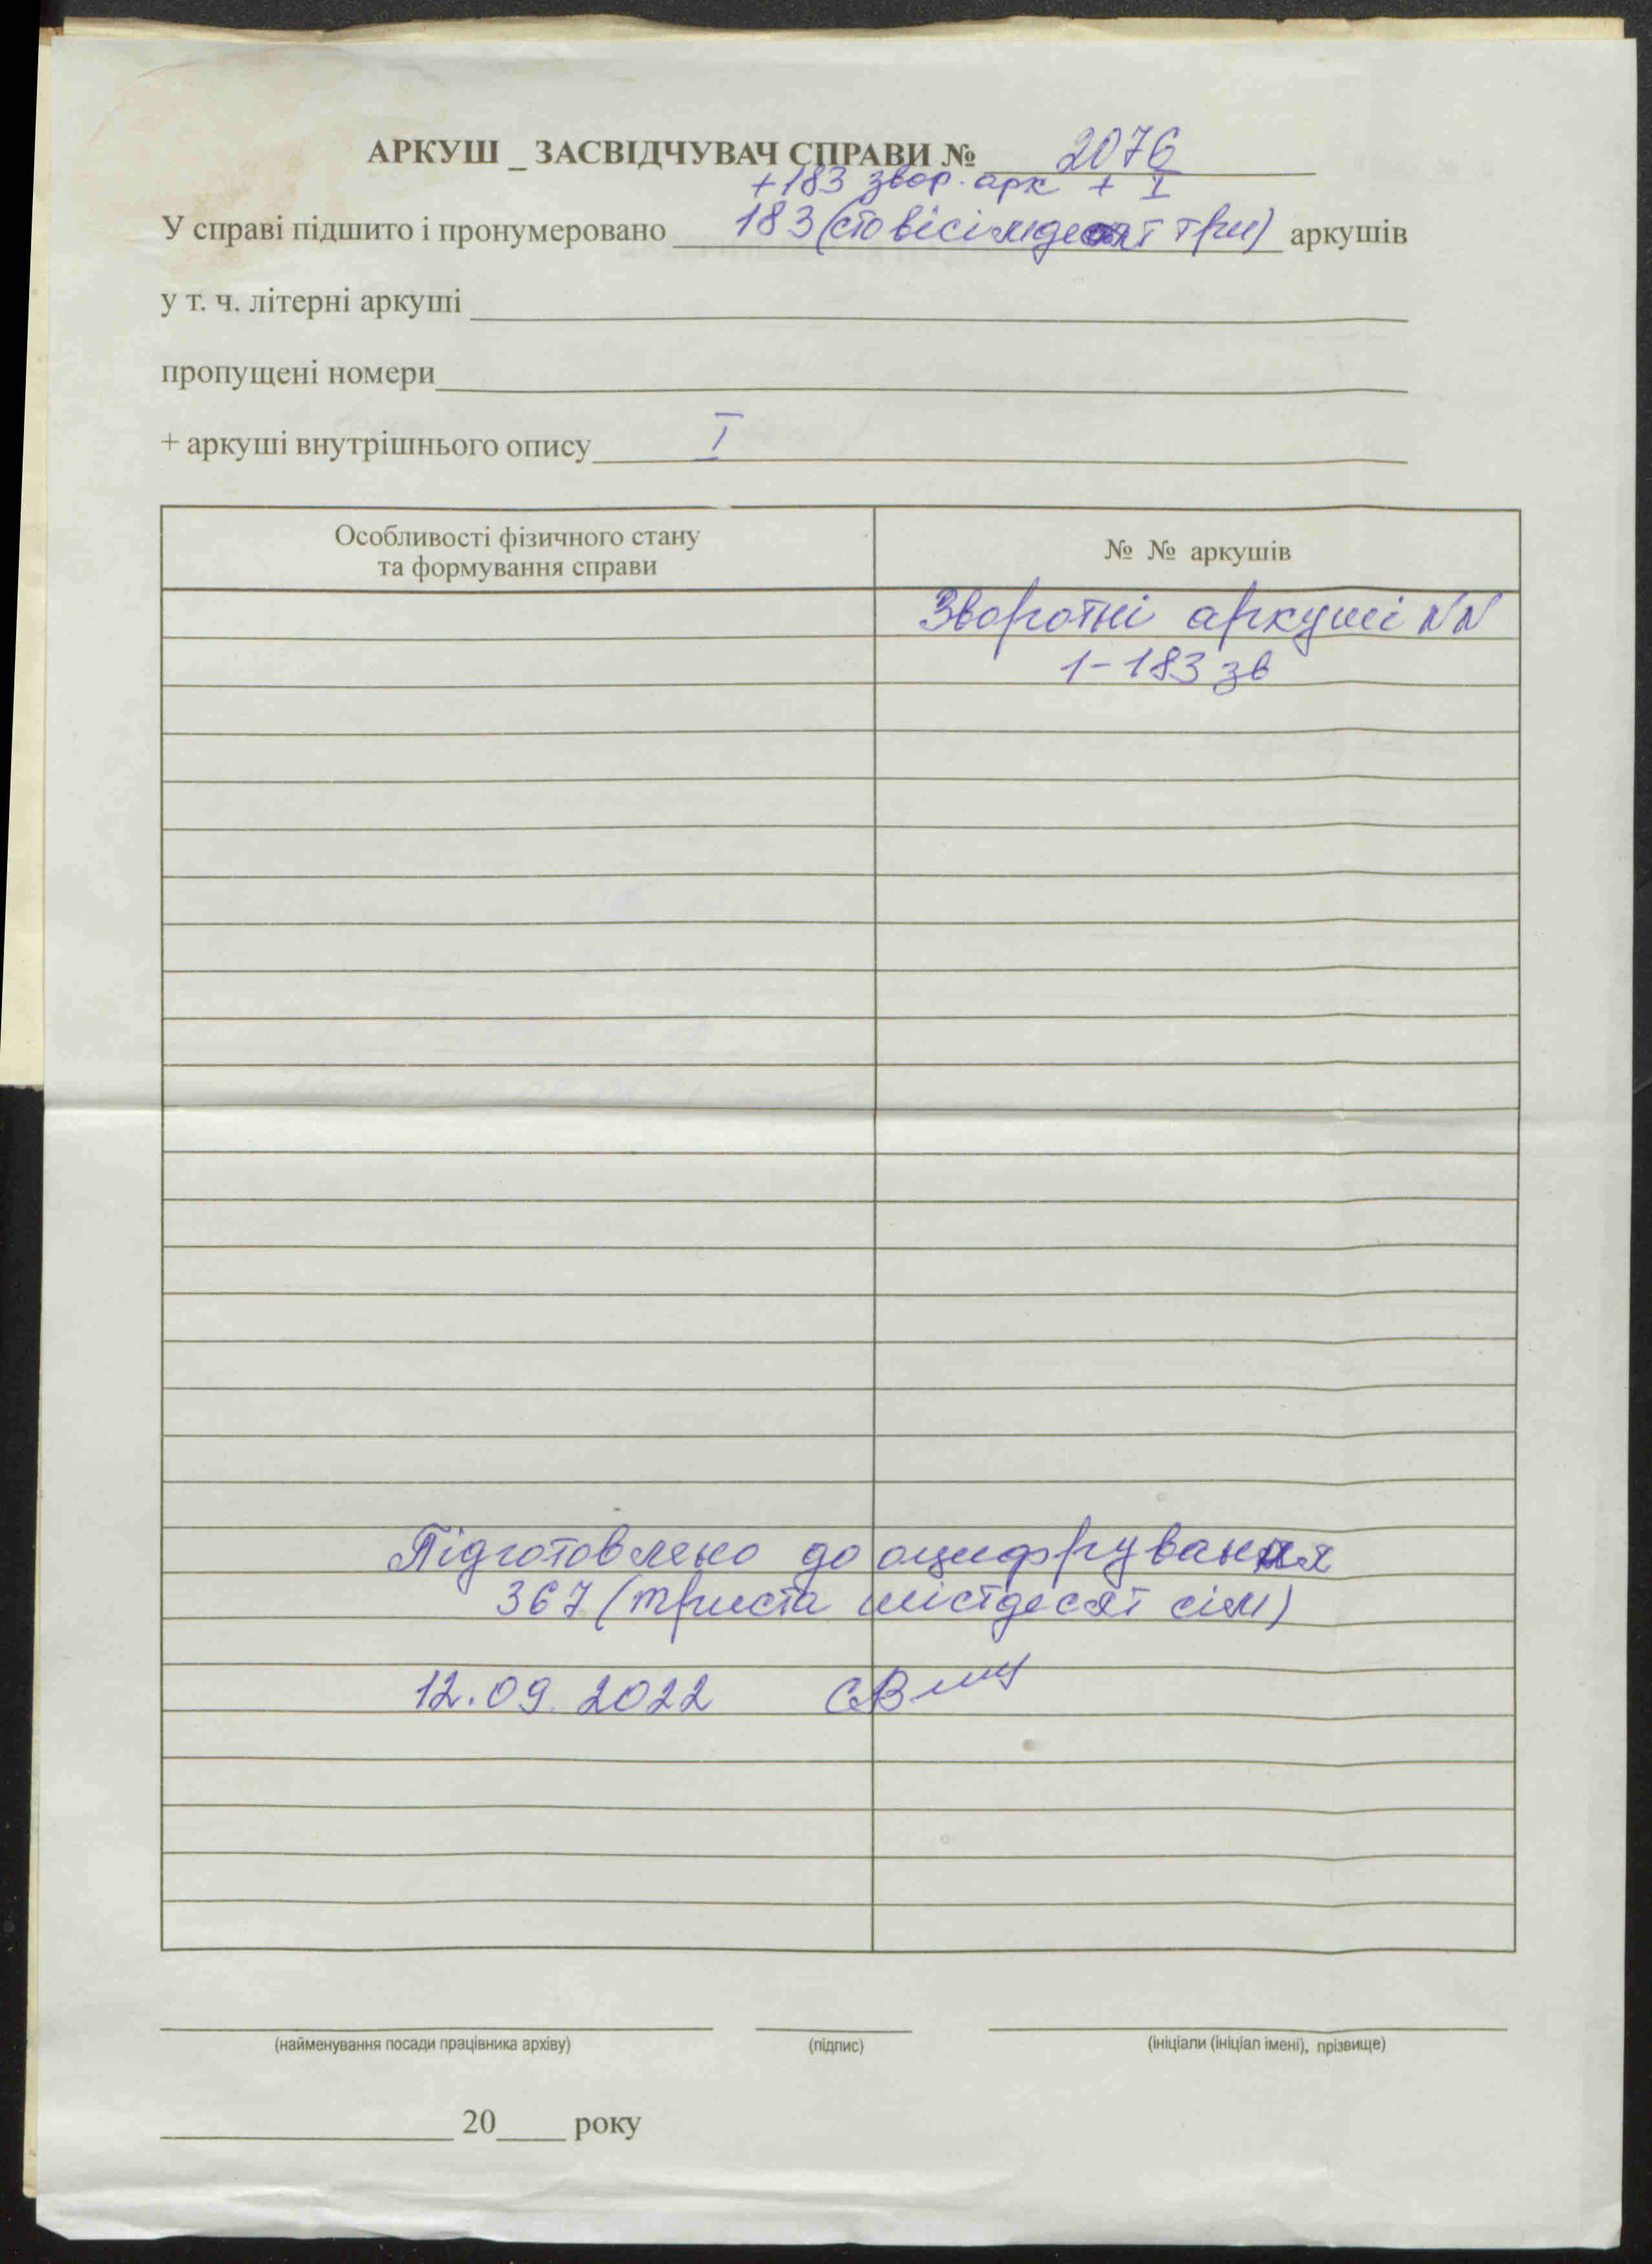 АРКУШ _ ЗАСВІДЧУВАЧ СПРАВИ № 2076
+183 звор. арк + I
У справі підшито і пронумеровано 183 (сто вісімдесят три) аркушів
у т. ч. літерні аркуші
пропущені номери
+ аркуші внутрішнього опису I
Особливості фізичного стану
та формування справи
№ № аркушів
Зворотні аркуші NN
1-183 зв
Підготовлено до оцифрування
367 (триста шістдесят сім)
12.09.2022
(найменування посади працівника архіву) (підпис) (ініціали (ініціал імені), прізвище)
20 року